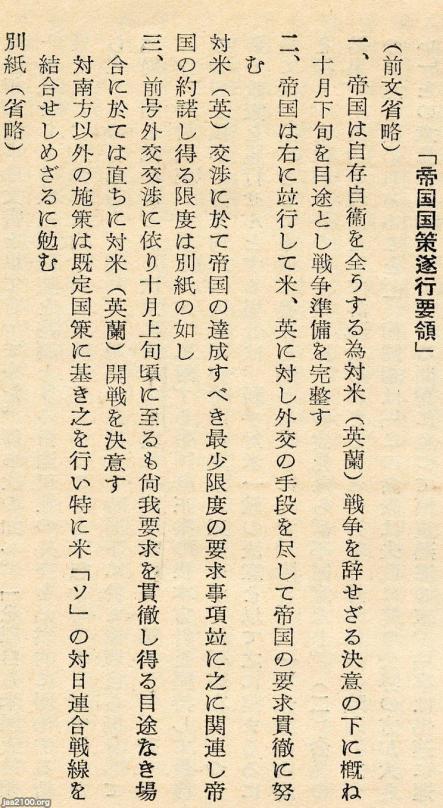 「帝国国策遂行要領」
（前文省略）
一、帝国は自存自衛を全うする為対米（英蘭）戦争を辞せざる決意の下に概ね
十月下旬を目途とし戦争準備を完整す
二、帝国は右に竝行して米、英に対し外交の手段を尽して帝国の要求貫徹に努
む
対米（英）交渉に於て帝国の達成すべき最少限度の要求事項竝に之に関連し帝
国の約諾し得る限度は別紙の如し
三、前号外交交渉に依り十月上旬頃に至るも尚我要求を貫徹し得る目途なき場
合に於ては直ちに対米（英蘭）開戦を決意す
対南方以外の施策は既定国策に基き之を行い特に米「ソ」の対日連合戦線を
結合せしめざるに勉む
別紙（省略）
jaa2100.org